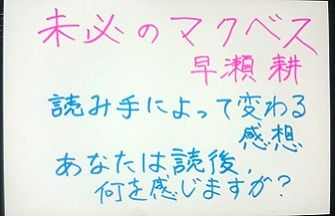 未必のマクベス
早瀬 耕
読み手によって変わる
感想
あなたは読後、
何を感じますか?